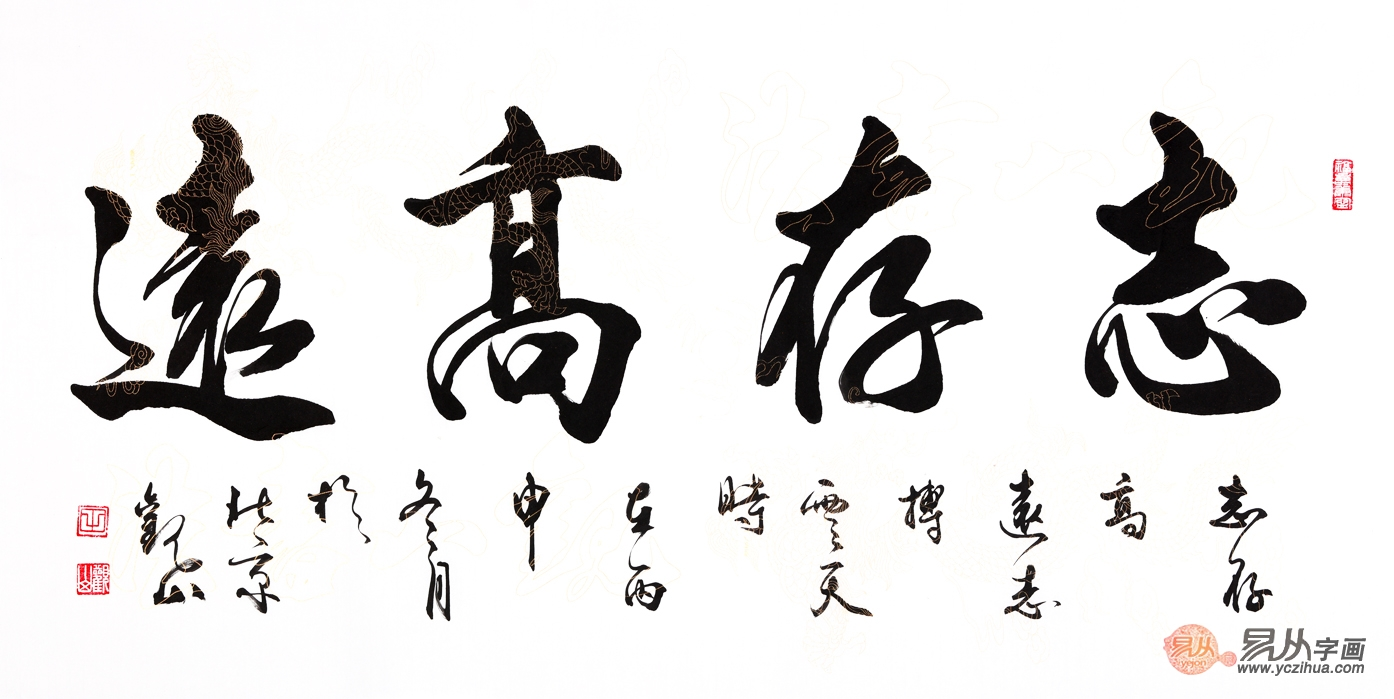 志存高遠
志存
高
遠志
搏
雲天
時
在丙
申
冬月
於
北京
觀山
易从字画
www.yczihua.com